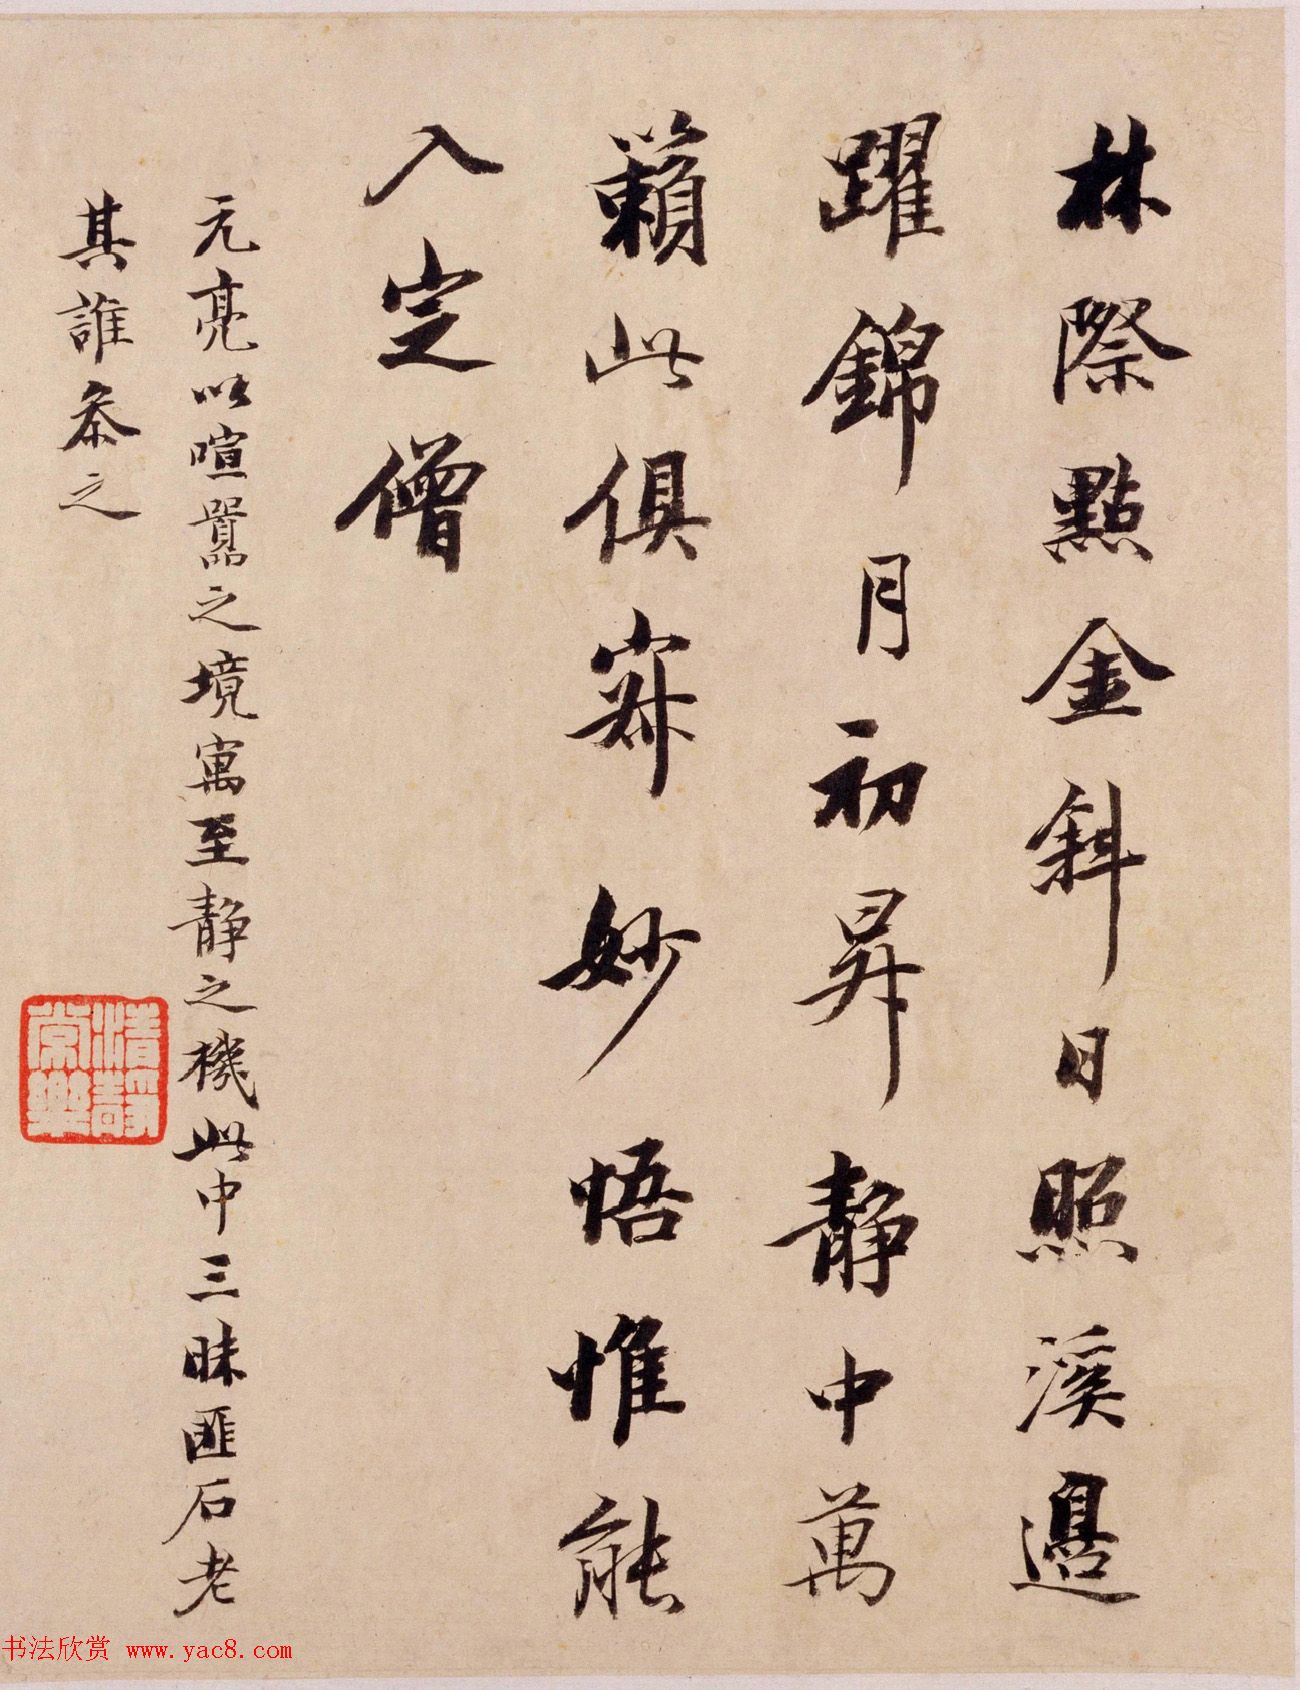 林際點金斜日照溪邊
躍錦月初昇靜中萬
籟此俱寂妙悟惟能
入定僧
元亮以喧囂之境寓至靜之機此中三昧匪石老
其誰叅之
清靜
常樂
书法欣赏 www.yac8.com